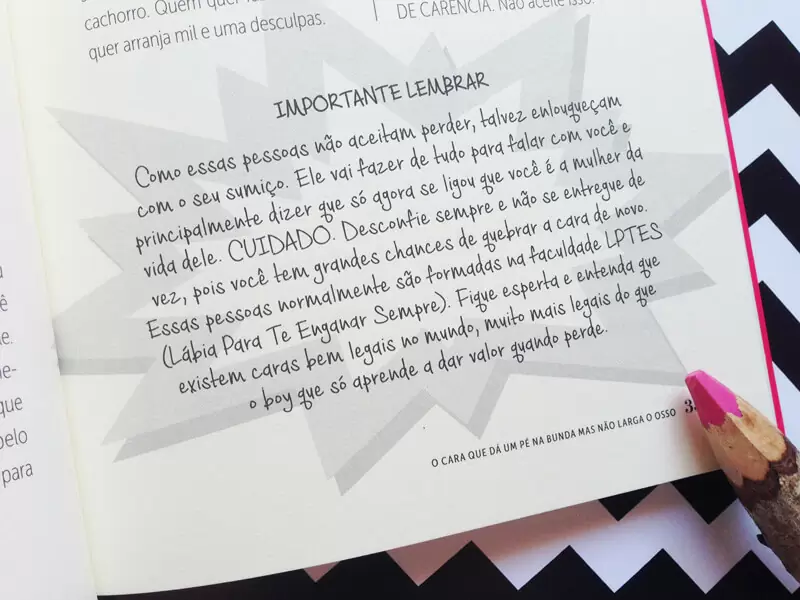 cachorro. Quem quer
quer arranja mil e uma desculpas.
DE CARÊNCIA. Não aceite isso.
IMPORTANTE LEMBRAR
Como essas pessoas não aceitam perder, talvez enlouqueçam
com o seu sumiço. Ele vai fazer de tudo para falar com você e
principalmente dizer que só agora se ligou que você é a mulher da
vida dele. CUIDADO. Desconfie sempre e não se entregue de
vez, pois você tem grandes chances de quebrar a cara de novo.
Essas pessoas normalmente são formadas na faculdade LPTES
(Lábia Para Te Enganar Sempre). Fique esperta e entenda que
existem caras bem legais no mundo, muito mais legais do que
o boy que só aprende a dar valor quando perde.
O CARA QUE DÁ UM PÉ NA BUNDA MAS NÃO LARGA O OSSO
que
pelo
para